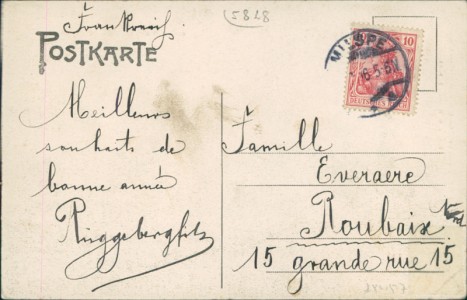 Frankreich
5828
POSTKARTE
MILSPE
10
DEUTSCHES REICH
Meilleurs
souhaits de
bonne année
Famille
Everaere
Roubaix Nord
15 grande rue 15